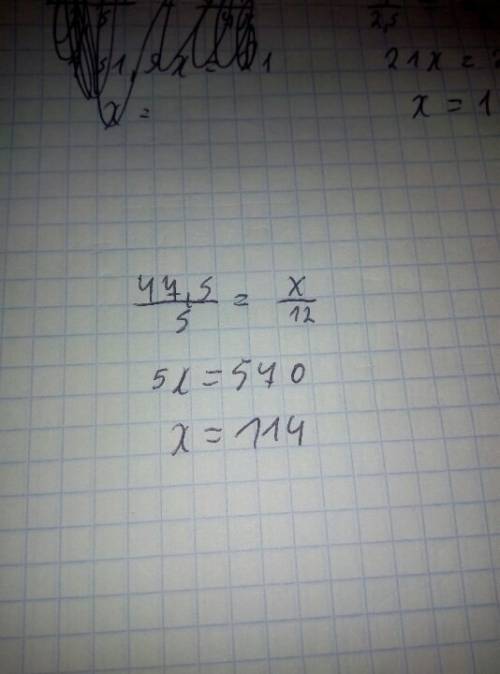 2,5
21x =
x = 1
x =
47,5/5 = x/12
5x = 570
x = 114